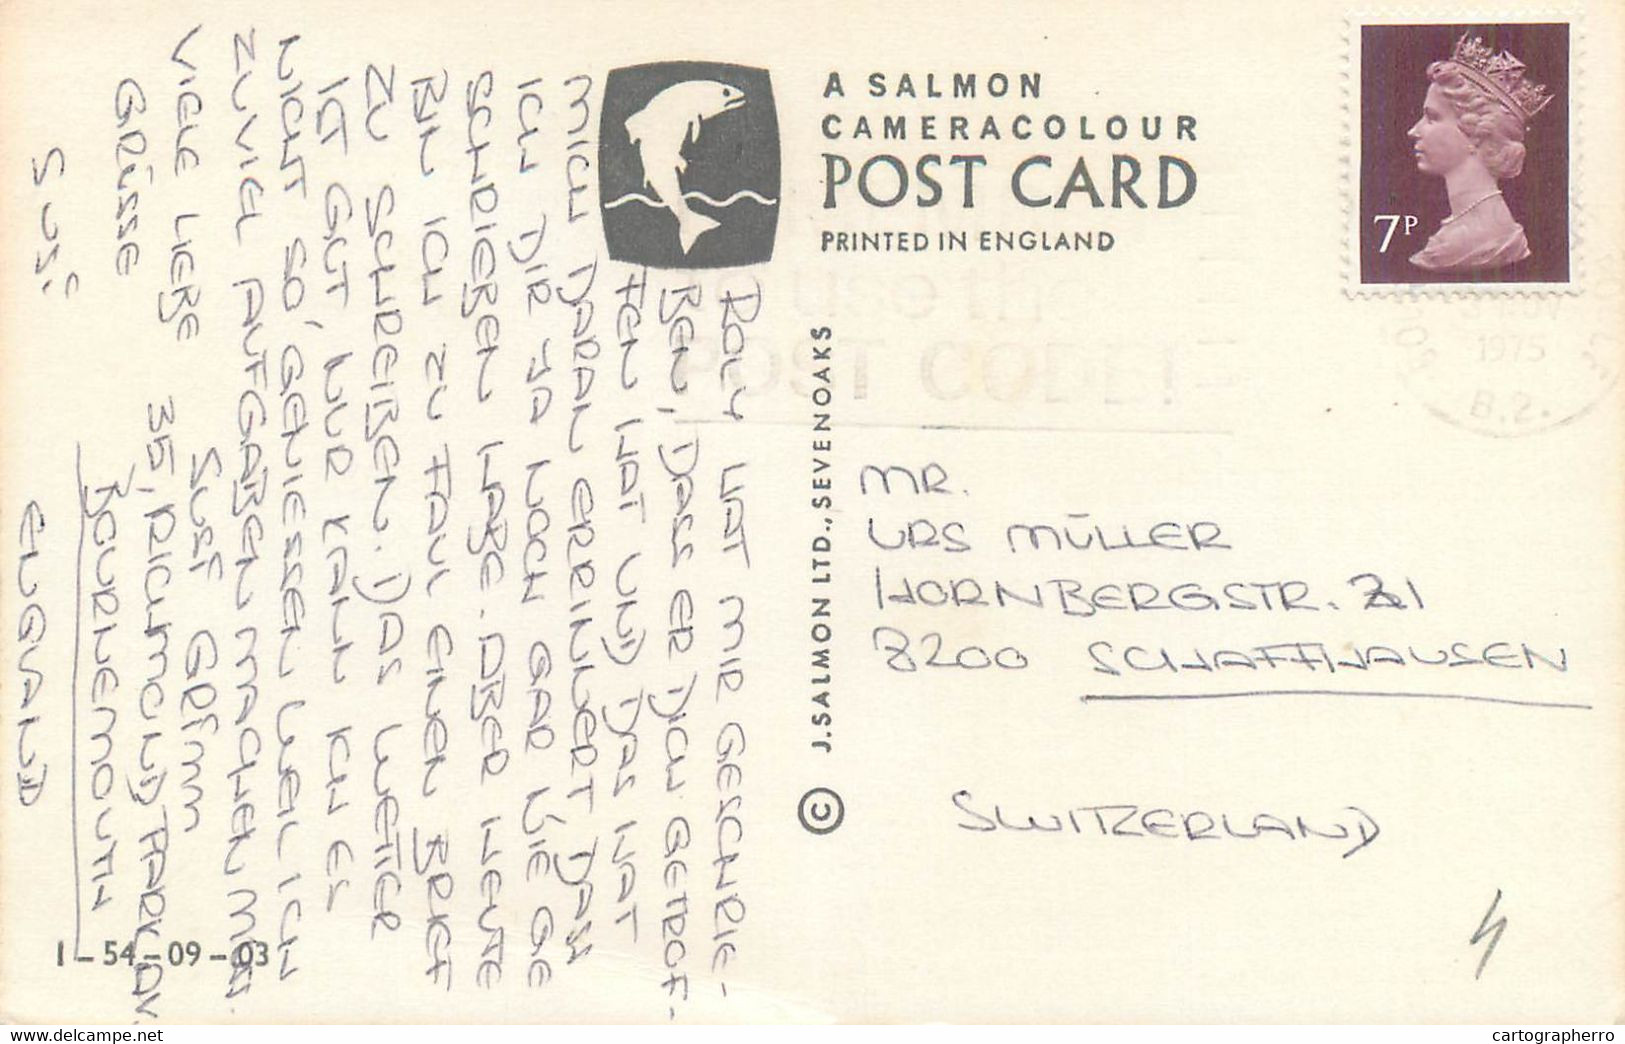 A SALMON
CAMERACOLOUR
POST CARD
PRINTED IN ENGLAND
7P
1975
B.2.
POST CODE!
© J. SALMON LTD., SEVENOAKS
ROLY HAT MIR GESCHRIE-
BEN, DASS ER DICH GETROF-
FEN HAT UND DAS HAT
MICH DARAN ERINNERT DASS
ICH DIR JA NOCH GAR NIE GE
SCHRIEBEN HABE. ABER HEUTE
BIN ICH ZU FAUL EINEN BRIEF
ZU SCHREIBEN. DAS WETTER
IST GUT, NUR KANN ICH ES
NICHT SO GENIESSEN WEIL ICH
ZUVIEL AUFGABEN MACHEN MUSS.
VIELE LIEBE
GRÜSSE
SUSI
SUSI GRIMM
35, RICHMOND PARK AV.
BOURNEMOUTH
ENGLAND
1-54-09-03
MR.
URS MÜLLER
HORNBERGSTR. 21
8200 SCHAFFHAUSEN
SWITZERLAND
cartographerro